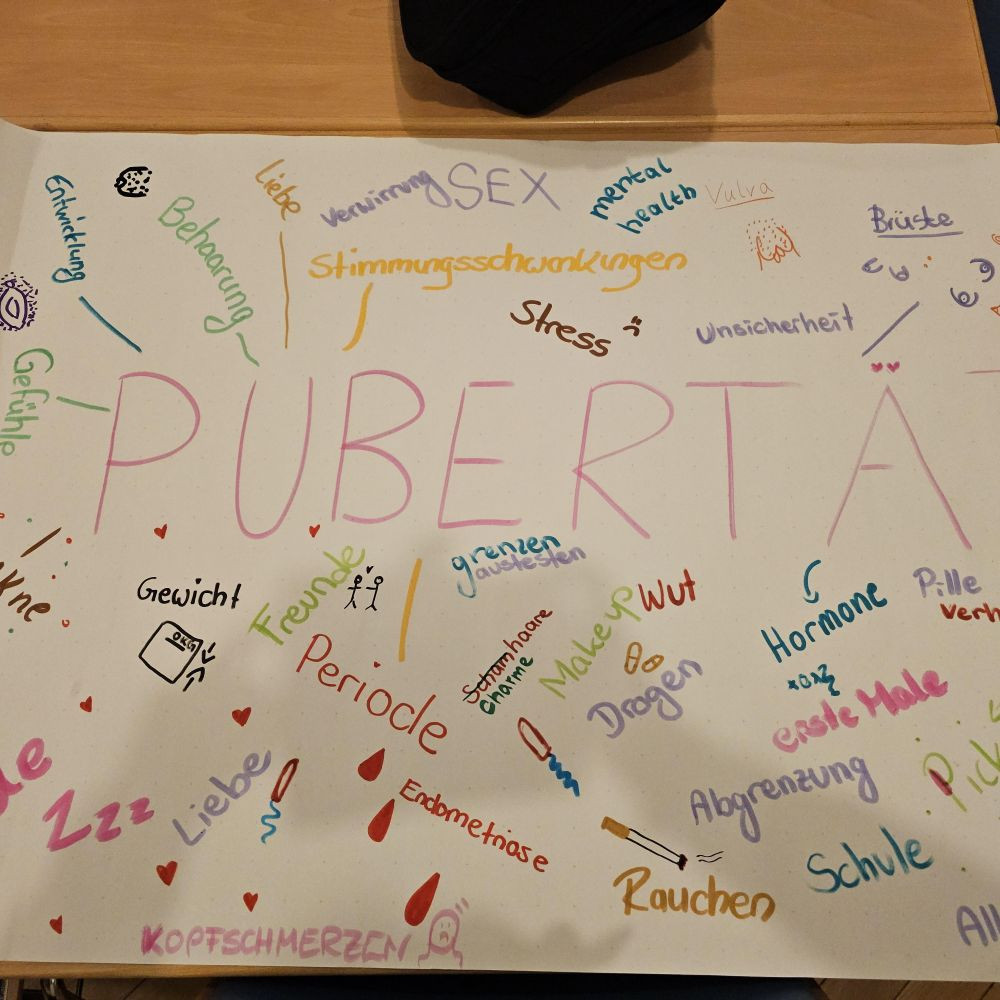 Entwicklung
Behaarung
liebe
Verwirrung
SEX
mental
health
Vulva
Brüste
Stimmungsschwankungen
Stress
Unsicherheit
Gefühle
PUBERTÄT
Akne
Gewicht
0KG
Freunde
grenzen
austesten
Schamhaare
charme
Make up
Wut
Hormone
Pille
verh
Periode
Drogen
erste Male
Pick
Zzz
Liebe
Endometriose
Abgrenzung
Rauchen
Schule
All
KOPFSCHMERZEN